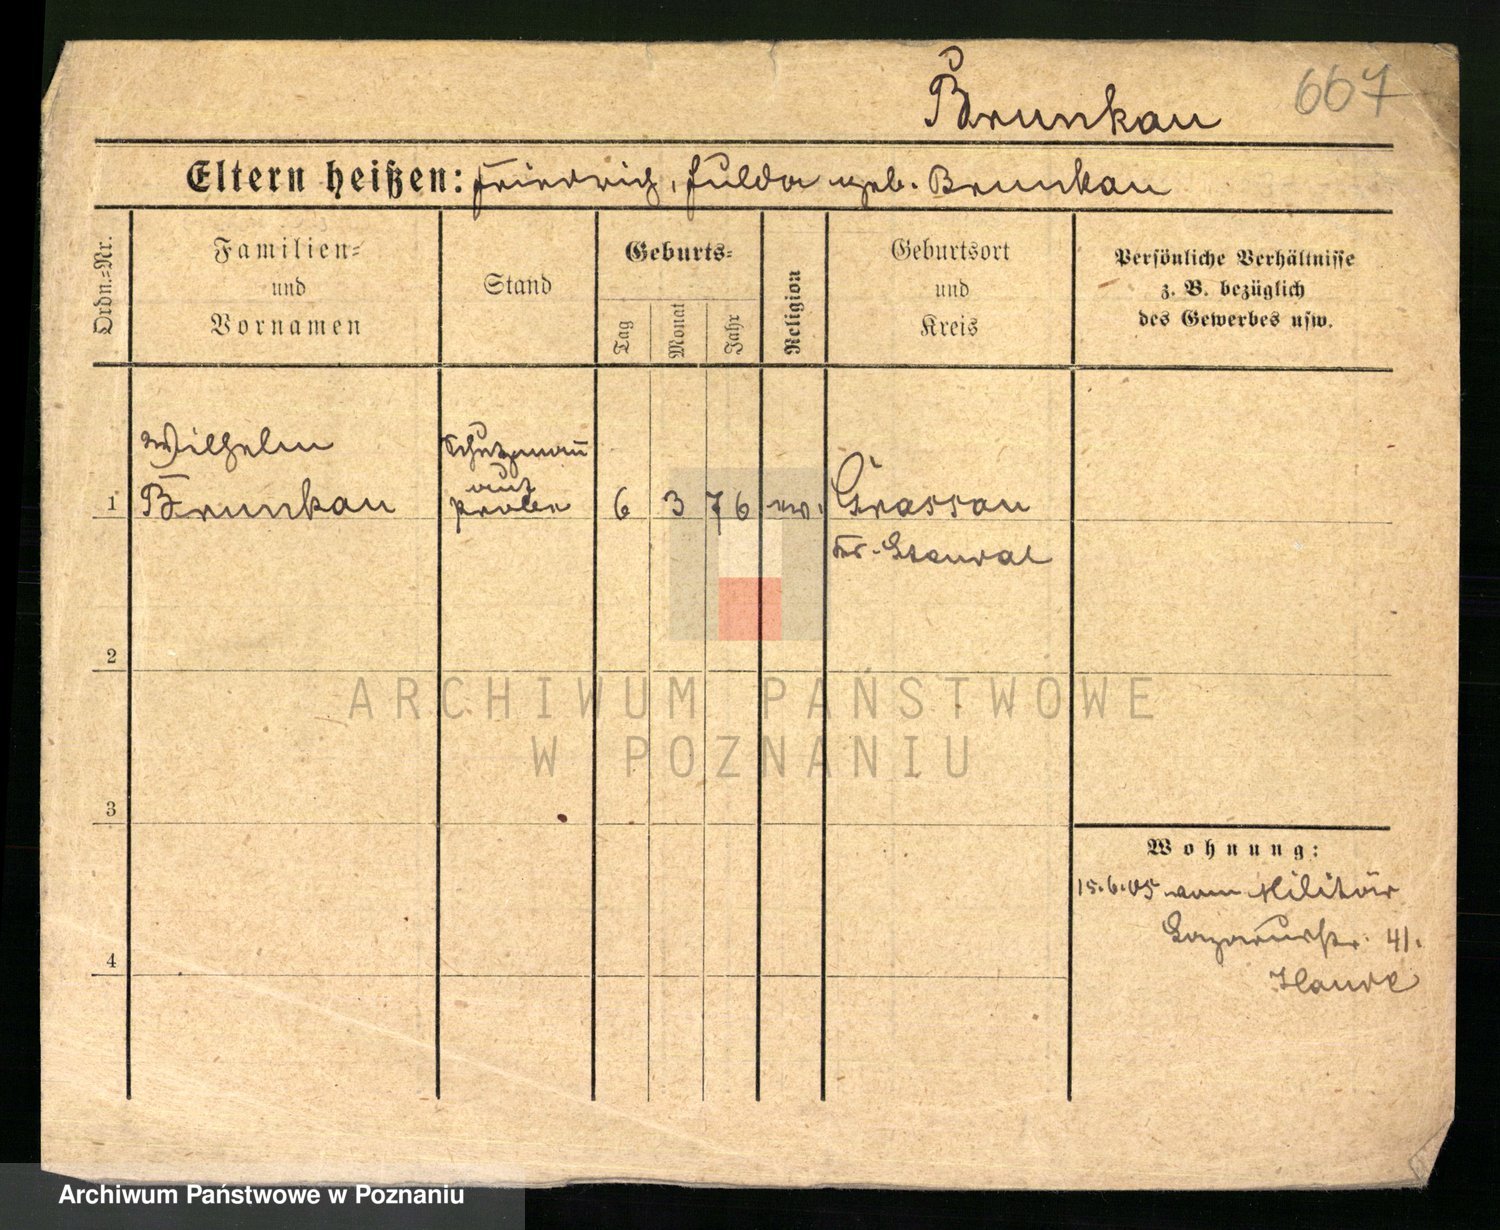 Brunkau 667
Eltern heißen: Friedrich, Hulda geb. Brunkau
Ordn.=Nr.
Familien=
und
Vornamen
Stand
Geburts=
Tag
Monat
Jahr
Religion
Geburtsort
und
Kreis
Persönliche Verhältnisse
z. B. bezüglich
des Gewerbes usw.
Wilhelm
Schutzmann
auf
1 Brunkau Probe 6 3 76 ev. Grassau
Kr. Stendal
2
3
4
Wohnung:
15.6.05 vom Militär
Lazarusstr. 41.
ARCHIWUM PAŃSTWOWE
W POZNANIU
Archiwum Państwowe w Poznaniu